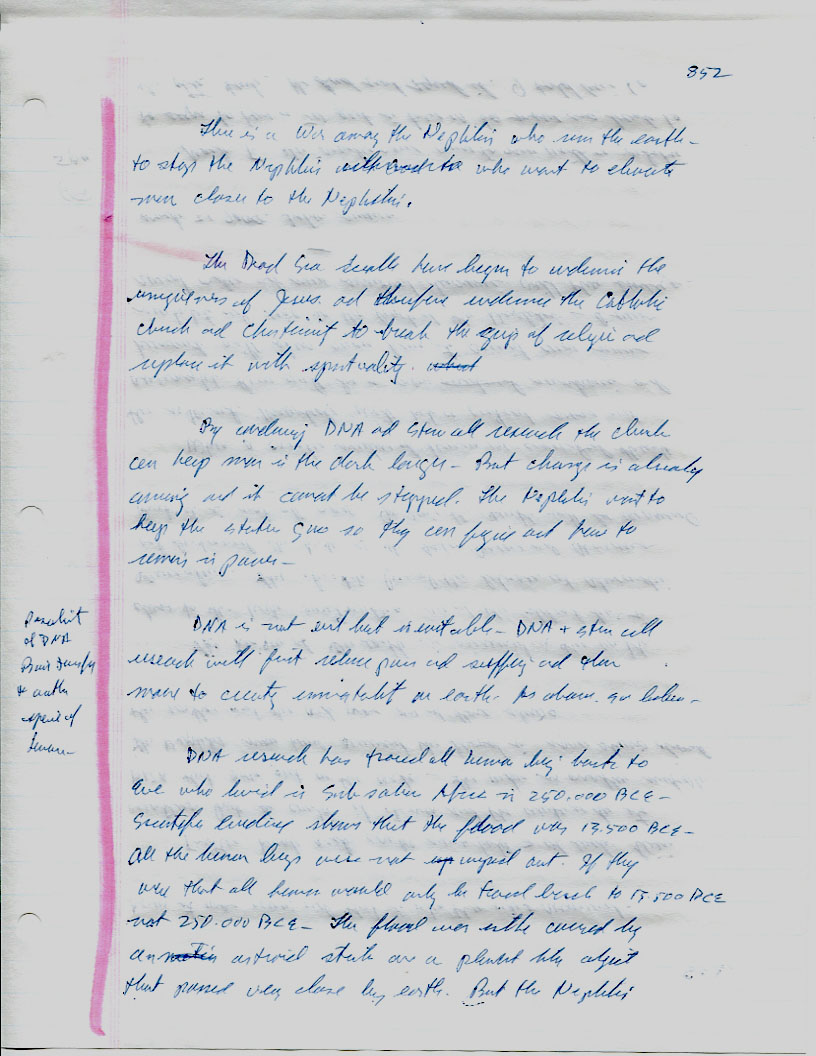 852
This is a War among the Nephlis who run the earth -
to stop the Nephlis who want to elevate
man closer to the Nephlis.
The Dead Sea Scrolls have begun to undermine the
uniqueness of Jesus ad therefore undermine the Catholic
church ad to break the grip of religion ad
replace it with spirituality.
By DNA ad stem cell research the church
can keep man in the dark longer - But change is already
coming and it cannot be stopped. The Nephlis want to
keep the status quo so they can figure out how to
remain in power -
DNA is not evil but inevitable - DNA + stem cell
research will first relieve pain ad suffering ad then
move to immortality on earth. As above, so below -
Possibility
of DNA
Brain Transfer
to another
species of
human -
DNA research has traced all human being back to
Eve who lived in Sub Africa in 250.000 BCE -
Scientific shows that the flood was 13.500 BCE -
All the human beings were not wiped out. If they
were that all human would only be traced back to 13.500 BCE
not 250.000 BCE - The flood was either caused by
an strike or a planet like object
that passed very close by earth. But the Nephlis